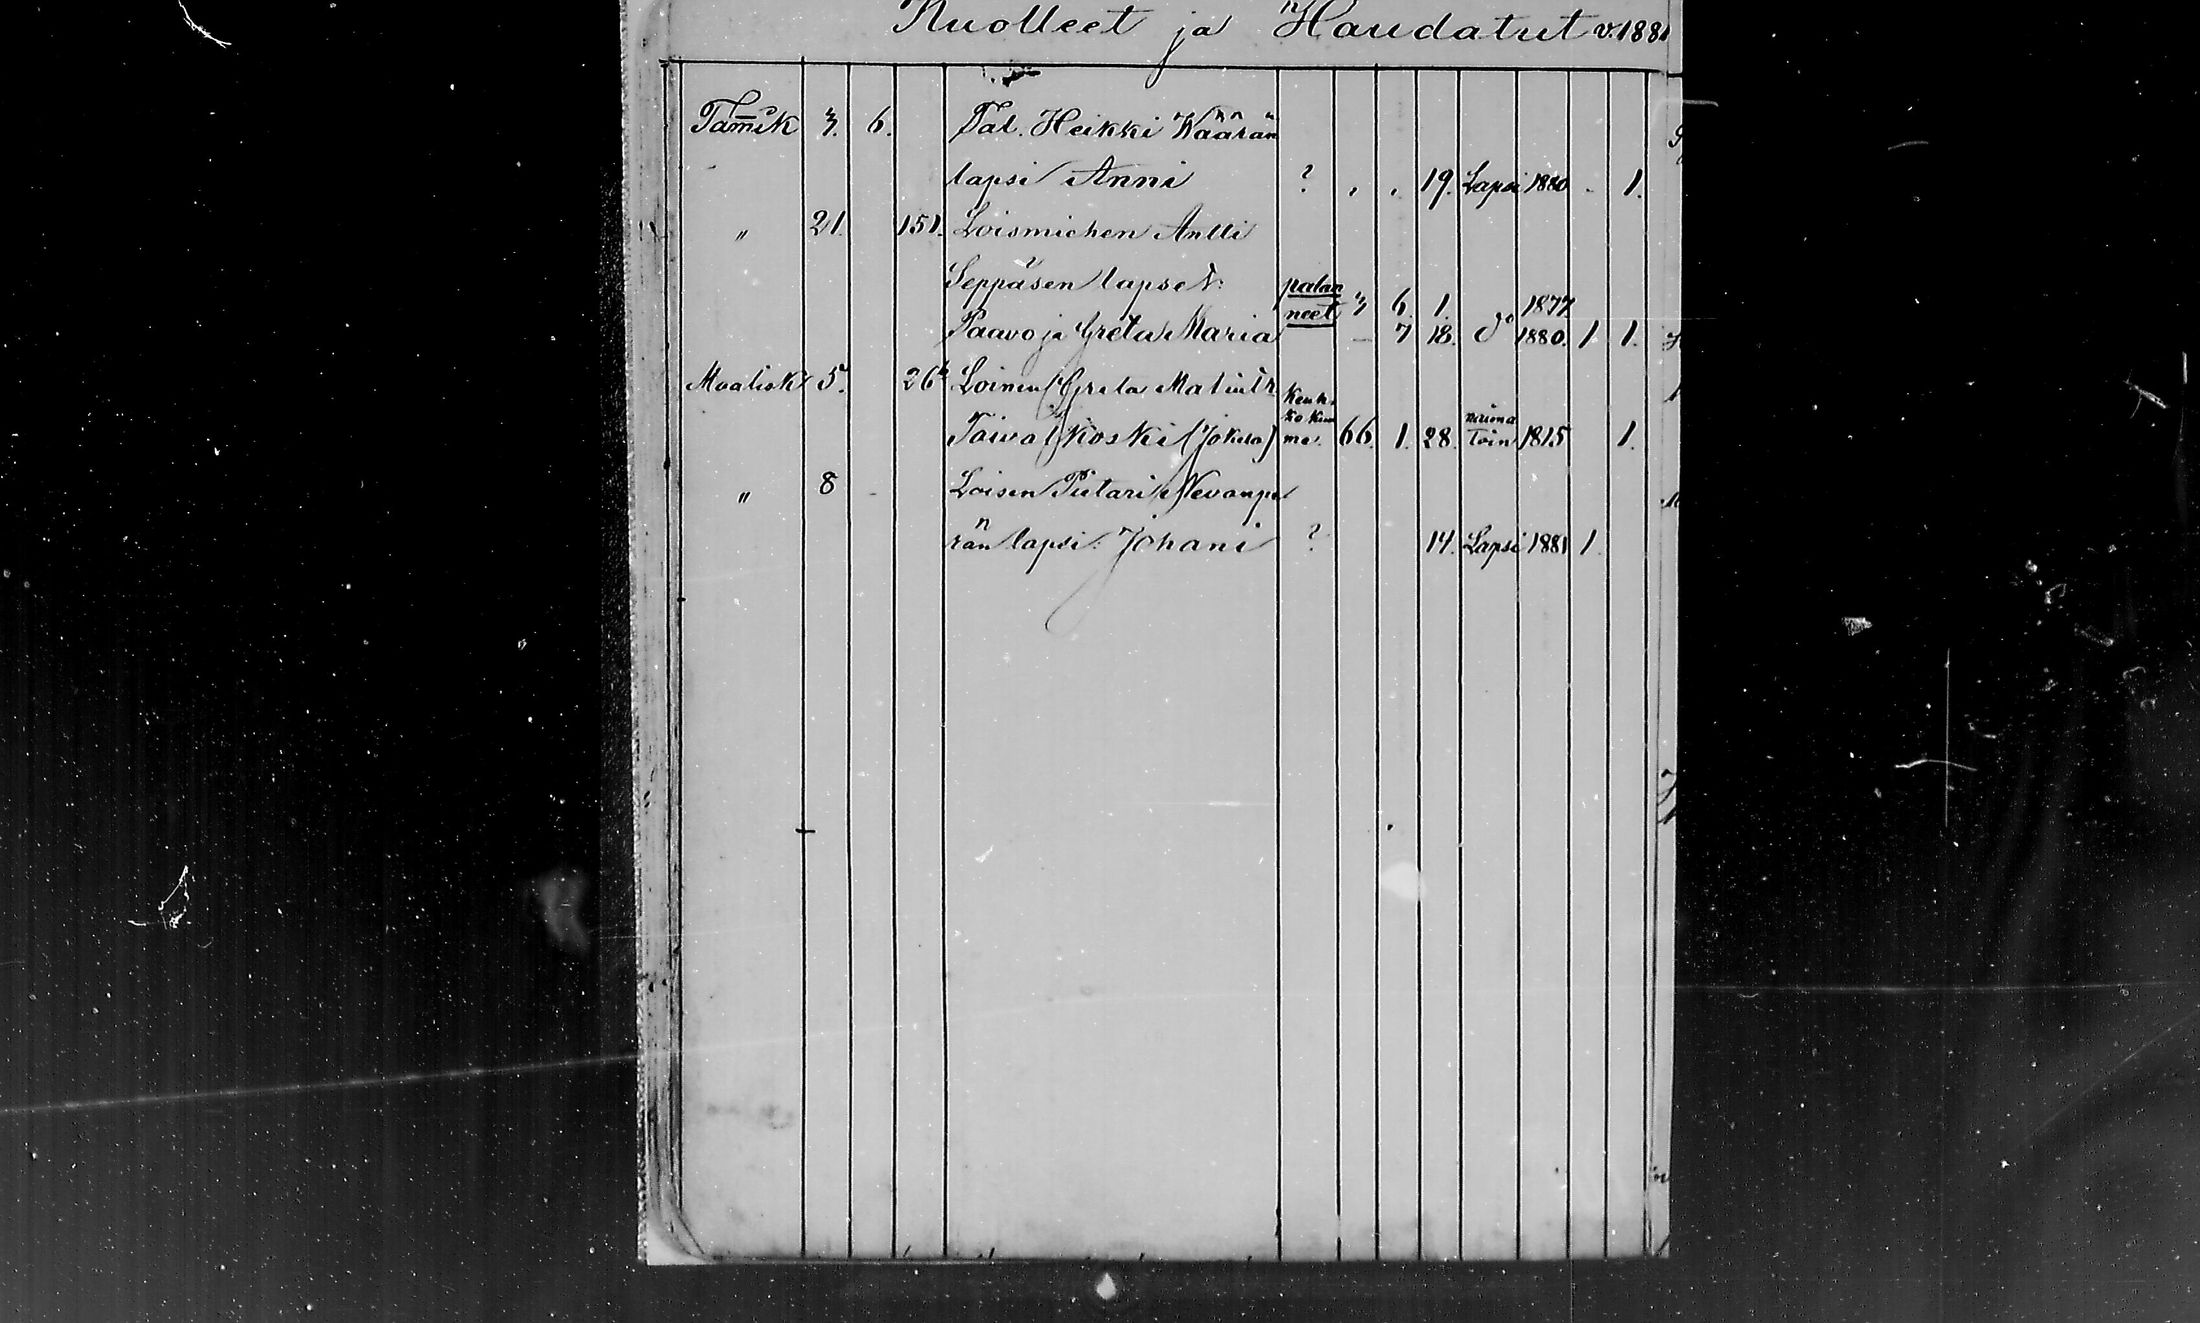 Kuolleet ja Haudatut v. 1881
Tamik 3. 6. Tal. Heikki Käärän
lapsi Anni ? 19. Lapsi 1880 - 1.
" 21. 151. Loismiehen Antti
Seppäsen lapset:
palan
neet 3 6. 1. 1877
Paavo ja Greta Maria - 7 18. do 1880. 1 1.
Maalisk 5. 26 Loinen Greta Matintr
Keuh-
Taivalkoski (Jokela) ko kuu
me. 66. 1. 28. naima
toin 1815 1.
" 8 - Loisen Pietari Nevanpe
rän lapsi: Johani ? 14. Lapsi 1881 1